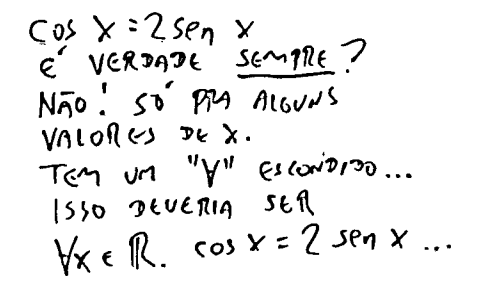 COS X = 2 SEN X
É VERDADE SEMPRE?
NÃO! SÓ PRA ALGUNS
VALORES DE X.
TEM UM "∀" ESCONDIDO...
ISSO DEVERIA SER
∀x ∈ ℝ. cos x = 2 sen x ...